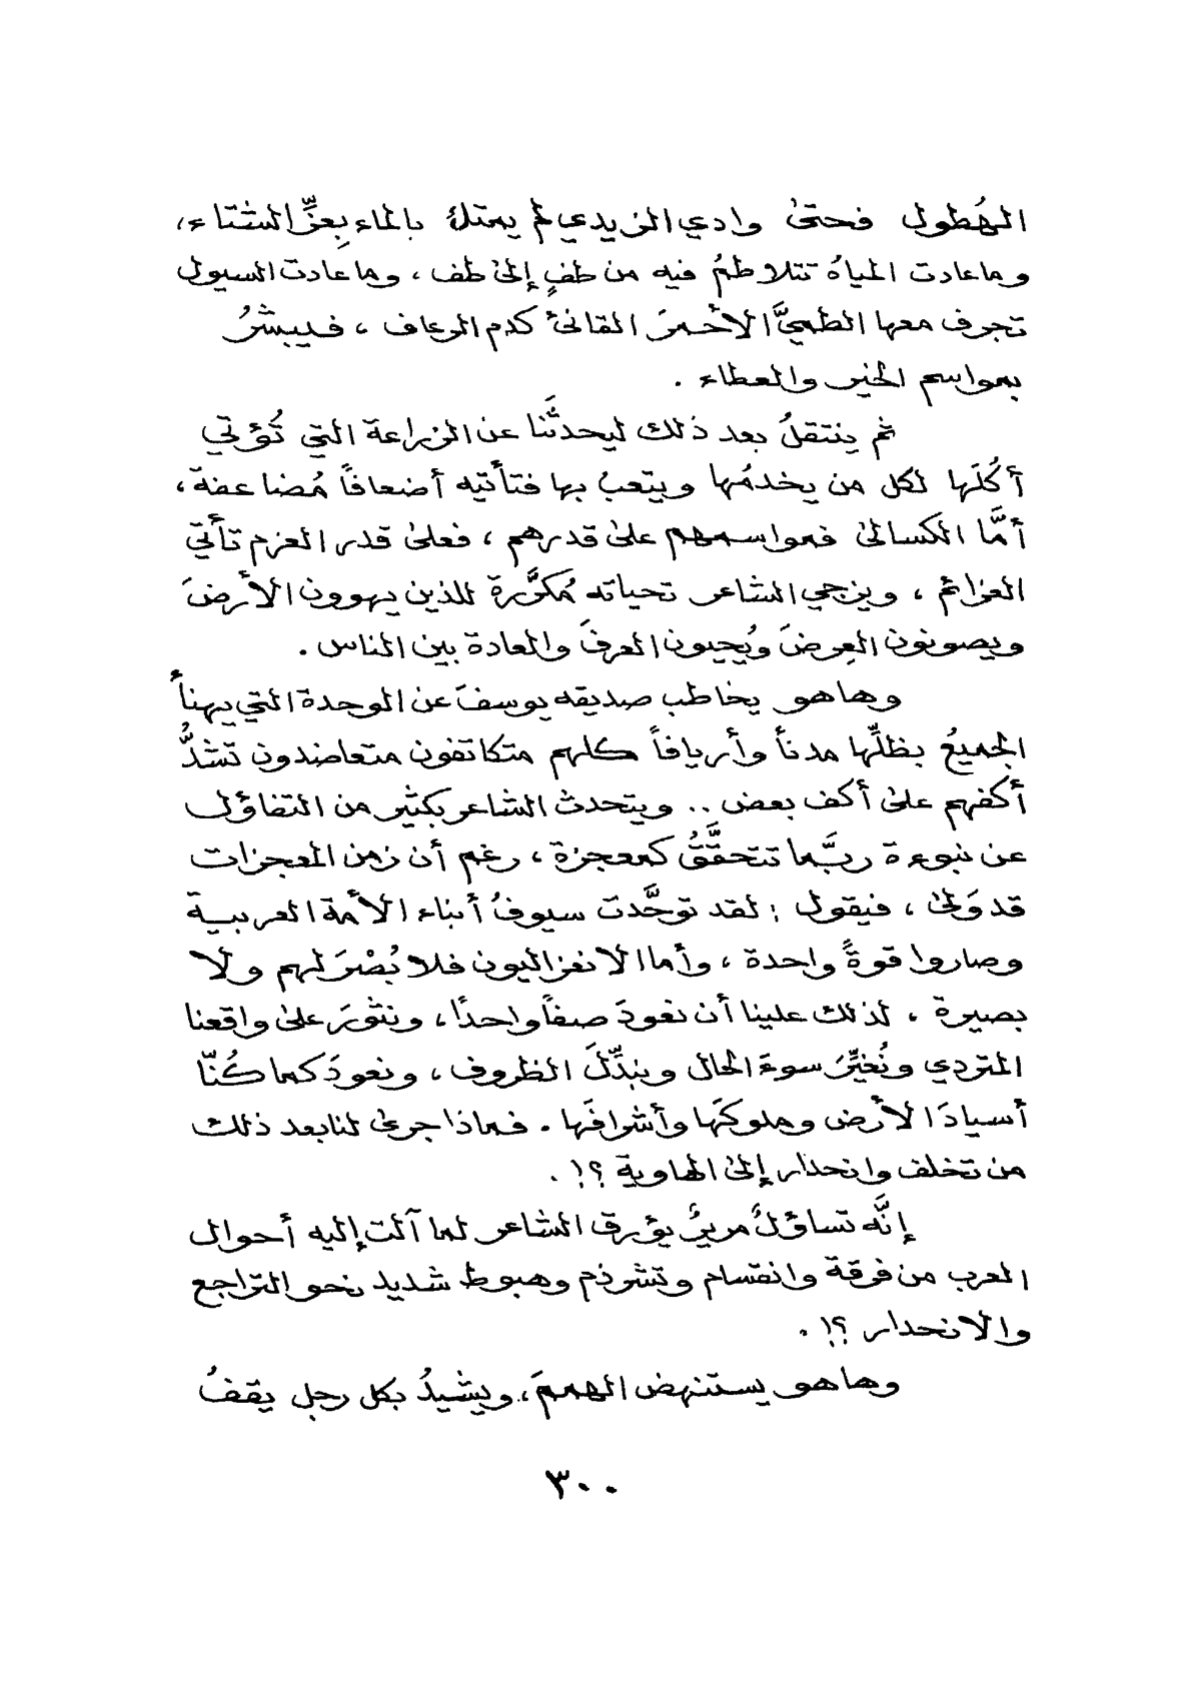 الهُطول فحتىٰ وادي الزيدي لم يمتلئ بالماء بِعزِّ الشتاء،
وماعادت المياهُ تتلاطمُ فيه من طفٍ إلىٰ طف ، وماعادت السيول
تجرف معها الطميَّ الأحمرَ القانئ كدم الرعاف ، فيبشرُ
بمواسم الخير والعطاء .
ثم ينتقلُ بعد ذلك ليحدثَّنا عن الزراعة التي تُؤتي
أكُلَها لكل من يخدمُها ويتعبُ بها فتأتيه أضعافاً مُضاعفة ،
أمَّا الكسالىٰ فمواسمهم علىٰ قدرهم ، فعلىٰ قدر العزم تأتي
العزائم ، ويزجي الشاعر تحياته مُكرَّرة للذين يهوون الأرضَ
ويصونون العِرضَ ويُحِيون العرفَ والعادة بين الناس .
وهاهو يخاطب صديقه يوسفَ عن الوحدة التي يهنأُ
الجميعُ بظلِّها مدناً وأريافاً كلهم متكاتفون متعاضدون تشدُّ
أكفهم علىٰ أكف بعض .. ويتحدث الشاعر بكثير من التفاؤل
عن نبوءة ربَّما تتحقَّقُ كمعجزة ، رغم أن زمن المعجزات
قد وَلىٰ ، فيقول : لقد توحَّدت سيوفُ أبناء الأمة العربية
وصاروا قوةً واحدة ، وأما الانعزاليون فلا بُصْرَ لهم ولا
بصيرة ، لذلك علينا أن نعودَ صفاً واحدًا ، ونثورَ علىٰ واقعنا
المتردي ونُغيِّرَ سوءَ الحال ونبدِّلَ الظروف ، ونعودَ كما كُنّا
أسيادَ الأرض وملوكَها وأشرافَها . فماذا جرىٰ لنا بعد ذلك
من تخلف وانحدار إلىٰ الهاوية ؟! .
إنَّه تساؤلٌ مريرٌ يؤرق الشاعر لما آلت إليه أحوال
العرب من فرقة وانقسام وتشرذم وهبوط شديد نحو التراجع
والانحدار ؟! .
وهاهو يستنهض الهممَ ، ويشيدُ بكل رجل يقفُ
٣٠٠